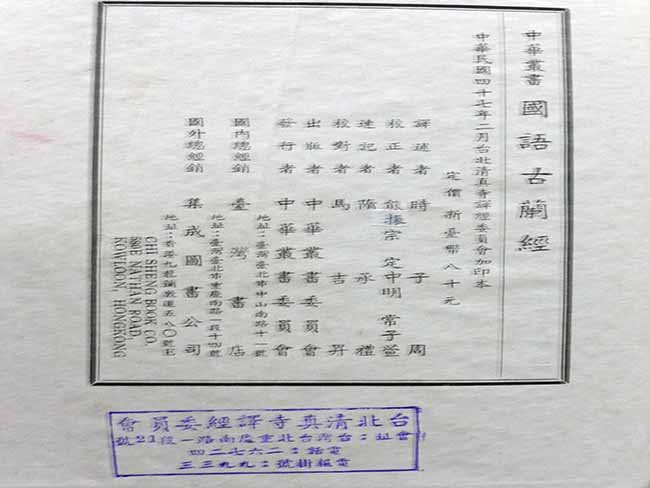 中華叢書 國語古蘭經
中華民國四十七年二月台北清真寺譯經委員會加印本
定價新臺幣八十元
譯述者 時子周
校正者 熊振宗 定中明 常子萱
速記者 隋承禮
校對者 馬吉昇
出版者 中華叢書委員會
發行者 中華叢書委員會
地址:臺灣臺北市中山南路十一號
國內總經銷 臺灣書店
地址:臺灣臺北市重慶南路一段十四號
國外總經銷 集成圖書公司
地址:香港九龍彌敦道五八〇號E
CHI SHENG BOOK CO.
580E NATHAN ROAD,
KOWLOON, HONGKONG
台北清真寺譯經委員會
會址:台灣台北重慶南路一段21號
電話:二六二七二四
電報掛號:九九三三